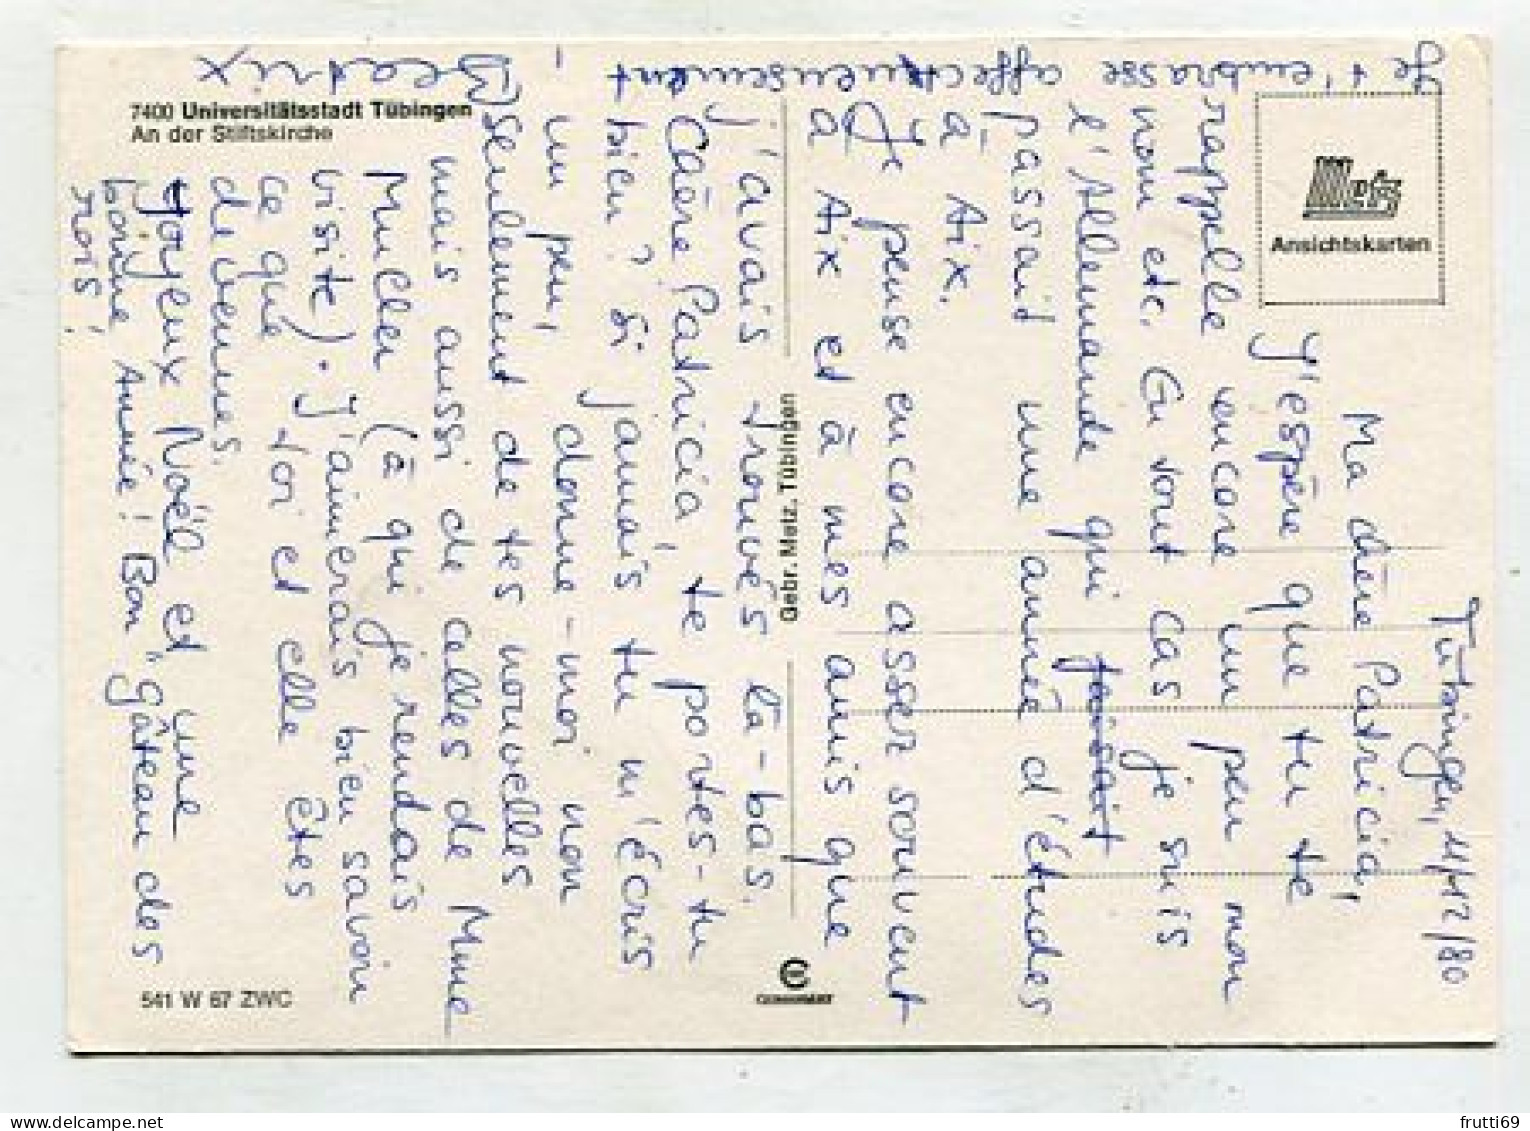 Tübingen, 11/12/80
Ma chère Patricia,
J'espère que tu te
rappelle encore un peu mon
nom etc. En tout cas je suis
l'Allemande qui faisait
passait une année d'études
à Aix.
Je pense encore assez souvent
à Aix et à mes amis que
j'avais trouvés là-bas.
Chère Patricia, te portes-tu
bien? Si jamais tu m'écris
un peu, donne-moi non
seulement de tes nouvelles
mais aussi de celles de Mme
(à qui je rendais
visite). J'aimerais bien savoir
ce que toi et elle êtes
devenues.
Joyeux Noël et une
bonne Année! Bon "gâteau des
rois!
Je t'embrasse affectueusement
- Beatrix
7400 Universitätsstadt Tübingen
An der Stiftskirche
Metz
Ansichtskarten
Gebr. Metz, Tübingen
541 W 67 ZWC
frutti69